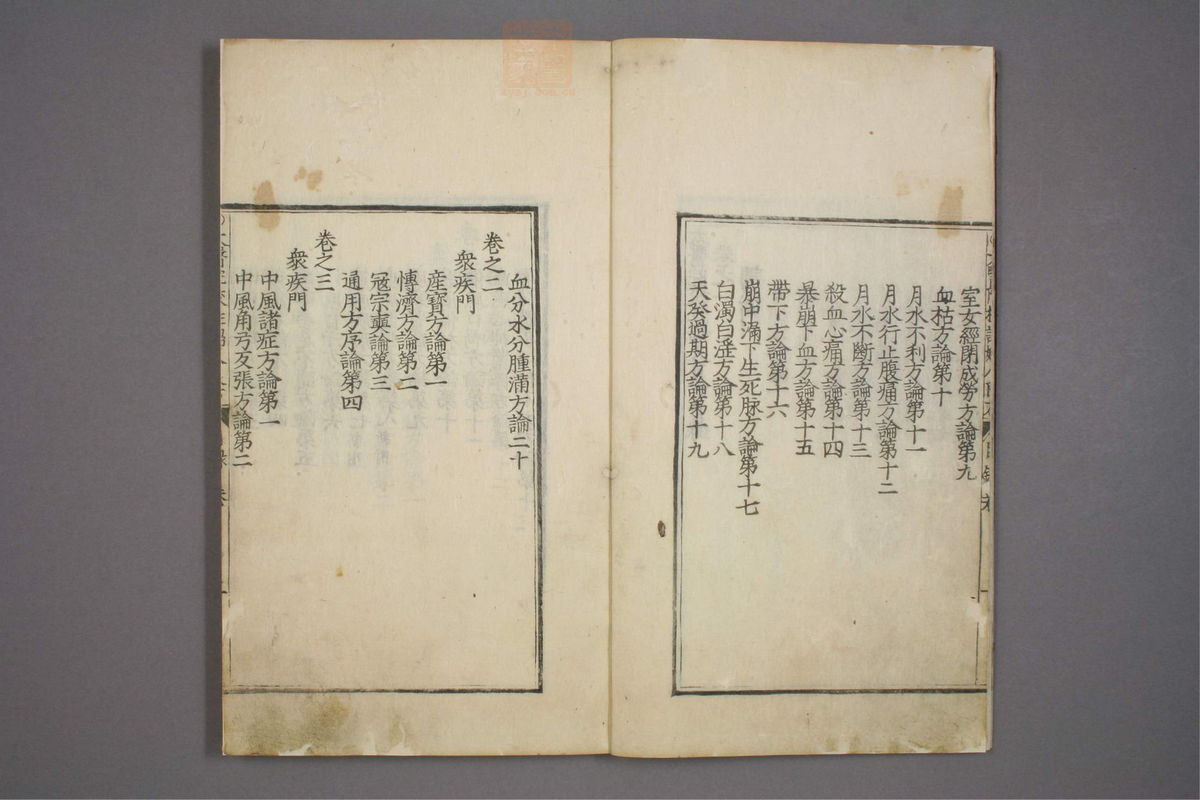 室女經閉成勞方論第九
血枯方論第十
月水不利方論第十一
月水行止腹痛方論第十二
月水不斷方論第十三
殺血心痛方論第十四
暴崩下血方論第十五
帶下方論第十六
崩中漏下生死脉方論第十七
白濁白淫方論第十八
天癸過期方論第十九
血分水分腫滿方論二十
卷之二
衆疾門
産寶方論第一
愽濟方論第二
冦宗奭論第三
通用方序論第四
卷之三
衆疾門
中風諸症方論第一
中風角弓反張方論第二